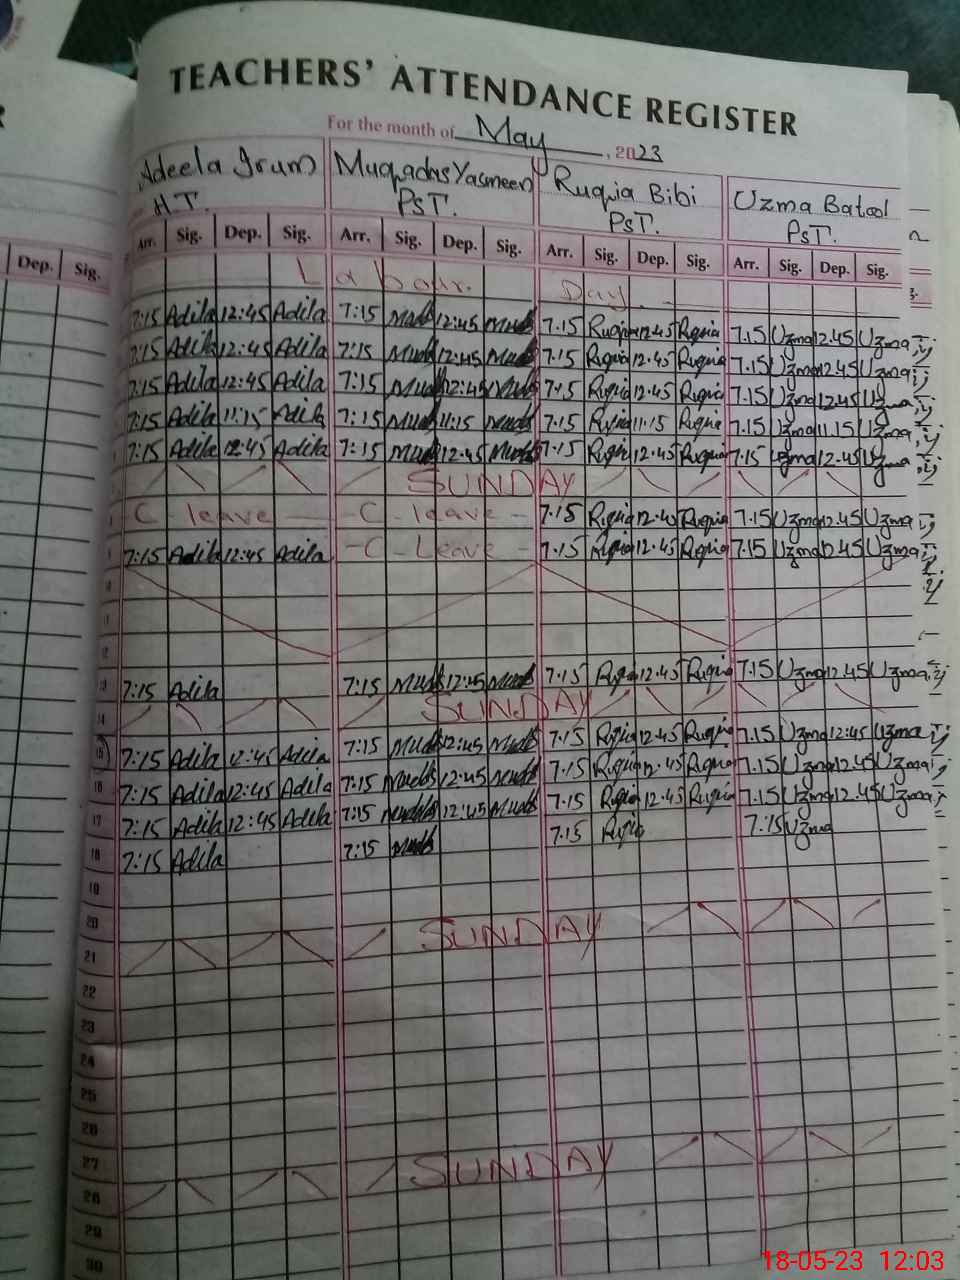 TEACHERS' ATTENDANCE REGISTER
For the month of May, 2023
Adeela Irum Muqadas Yasmeen Ruqia Bibi Uzma Batool
HT. PST. PST. PST.
Dep. Sig. Arr. Sig. Dep. Sig. Arr. Sig. Dep. Sig. Arr. Sig. Dep. Sig. Arr. Sig. Dep. Sig.
Labour. Day
7:15 Adila 12:45 Adila 7:15 Muds 12:45 Muds 7.15 Ruqia 12.45 Ruqia 7.15 Uzma 12.45 Uzma
7:15 Adila 12:45 Adila 7:15 Muds 12:45 Muds 7.15 Ruqia 12.45 Ruqia 7.15 Uzma 12.45 Uzma
7:15 Adila 12:45 Adila 7:15 Muds 12:45 Muds 7.15 Ruqia 12.45 Ruqia 7.15 Uzma 12.45 Uzma
7:15 Adila 11:15 Adila 7:15 Muds 11:15 Muds 7.15 Ruqia 11.15 Ruqia 7.15 Uzma 11.15 Uzma
7:15 Adila 12:45 Adila 7:15 Muds 12:45 Muds 7.15 Ruqia 12.45 Ruqia 7.15 Uzma 12.45 Uzma
SUNDAY
C - leave - C - leave - 7.15 Ruqia Ruqia 7.15 Uzma 12.45 Uzma
7:15 Adila 12:45 Adila - C - Leave - 7.15 Ruqia 12.45 Ruqia 7.15 Uzma 12.45 Uzma
11
12
13 7:15 Adila 7:15 Muds 12:45 Muds 7.15 Ruqia 12.45 Ruqia 7.15 Uzma 12.45 Uzma
14 SUNDAY
15 7:15 Adila 12:45 Adila 7:15 Muds 12:45 Muds 7.15 Ruqia 12.45 Ruqia 7.15 Uzma 12:45 Uzma
16 7:15 Adila 12:45 Adila 7:15 Muds 12:45 Muds 7.15 Ruqia 12.45 Ruqia 7.15 Uzma 12.45 Uzma
17 7:15 Adila 12:45 Adila 7:15 Muds 12:45 Muds 7.15 Ruqia 12.45 Ruqia 7.15 Uzma 12.45 Uzma
18 7:15 Adila 7:15 Muds 7.15 Ruqia 7.15 Uzma
19
20
21 SUNDAY
22
23
24
25
26
27
28 SUNDAY
29
30
18-05-23 12:03